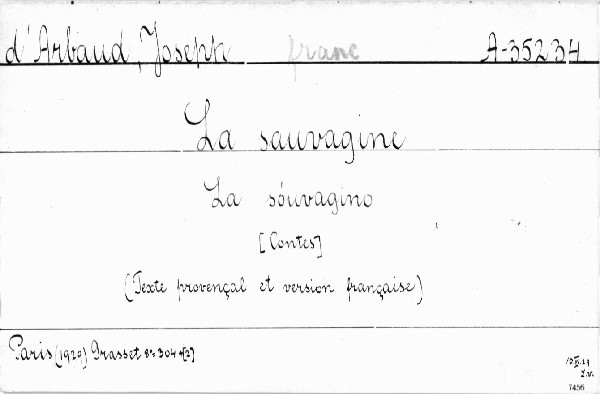 d'Arbaud, Joseph franc A-35234
La sauvagine
La sóuvagino
[Contes]
(Texte provençal et version française)
Paris (1929) Grasset 8º 304 +[2]
7456